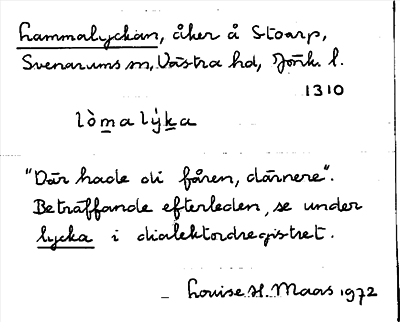 Lammalyckan, åker å Stoarp,
Svenarums sn, Västra hd, Jönk. l.
1310
lòmalýka
"Där hade di fåren, därnere".
Beträffande efterleden, se under
lycka i dialektordregistret.
– Louise H. Maas 1972